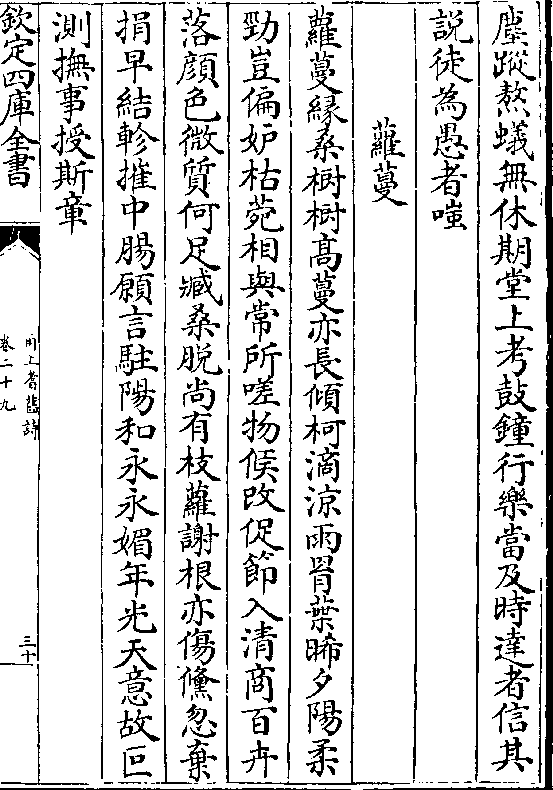 塵蹤熬蟻無休期堂上考鼓鐘行樂當及時達者信其
說徒為愚者嗤
蘿蔓
蘿蔓縁桑樹樹髙蔓亦長傾柯滴涼雨罥葉晞夕陽柔
勁豈偏妒枯菀相與常所嗟物候改促節入清商百卉
落顔色微質何足臧桑脱尚有枝蘿謝根亦傷儵忽棄
捐早結軫摧中腸願言駐陽和永永媚年光天意故叵
測撫事授斯章
欽定四庫全書
甬上耆舊詩
卷二十九
三十